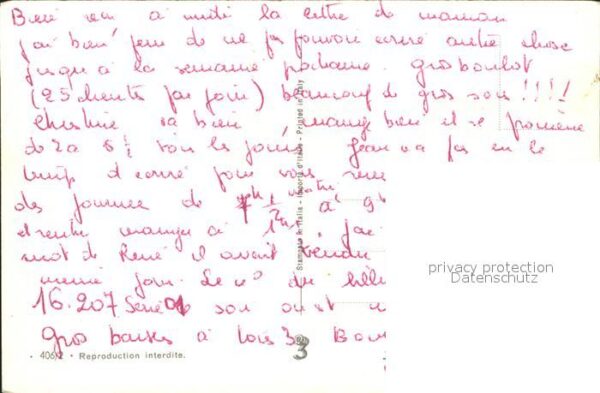 Bien recu à midi la lettre de maman
j'ai bien peur de ne pas pouvoir ecrire autre chose
jusqu'à la semaine prochaine. gros boulot
(25 clients par jour) beaucoup de gros sous !!!!
christine va bien mange bien et se promène
de 2 a 6 ½ tous les jours. Jean n'a pas eu le
temps d'ecrire pour vous
des journée de 7h ½ à 9h
et rentre manger à j'ai
mot de René il avait vendu
meme jour. Le n° du bille
16.207 Serie 01 son
Gros baisers à tous 3. Bon
Stampato in Italia - Importé d'Italie - Printed in Italy
privacy protection
Datenschutz
3
• 406/2 • Reproduction interdite.